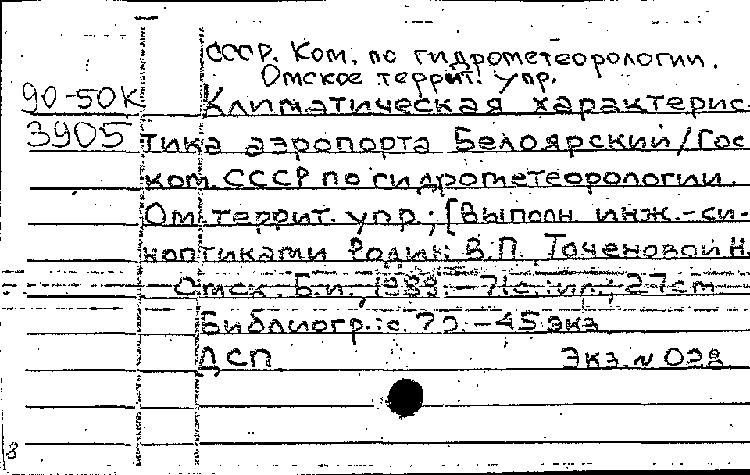 СССР. Ком. по гидрометеорологии.
Омское террит. упр.
90-50К Климатическая характерис-
3905 тика аэропорта Белоярский/Гос
ком. СССР по гидрометеорологии.
Ом. террит. упр.; [Выполн. инж.-си-
ноптиками В.П. Н.
Омск : Б.и., 1989. - 71с. : ил.; 27см
Библиогр.: с. - 45 экз
ДСП Экз. N
8